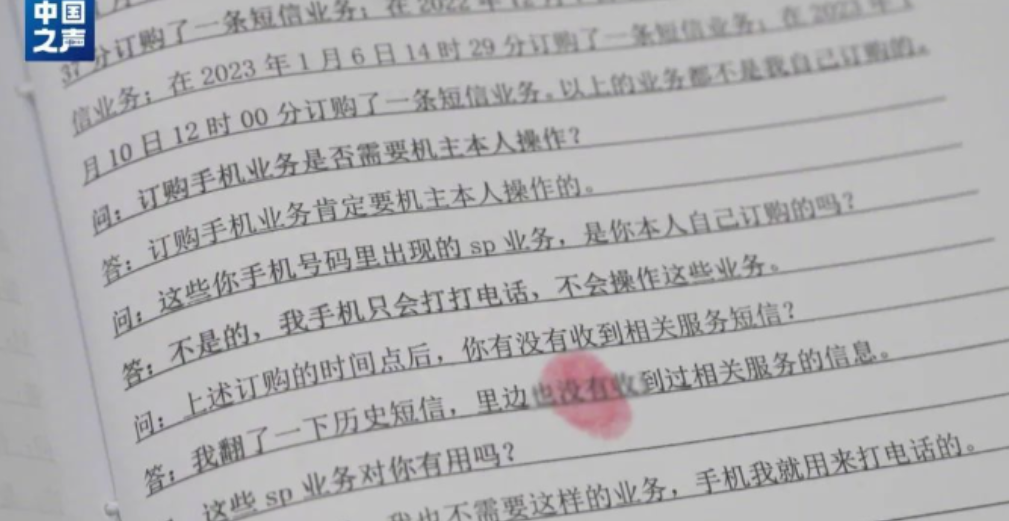 中国
之声
分订购了一条短信业务；在 2022 年 12 月
37 分订购了一条短信业务；在 2023 年 1
信业务；在 2023 年 1 月 6 日 14 时 29 分订购了一条短信业务；在 2023 年 1
月 10 日 12 时 00 分订购了一条短信业务。以上的业务都不是我自己订购的。
问：订购手机业务是否需要机主本人操作？
答：订购手机业务肯定要机主本人操作的。
问：这些你手机号码里出现的 sp 业务，是你本人自己订购的吗？
答：不是的，我手机只会打打电话，不会操作这些业务。
问：上述订购的时间点后，你有没有收到相关服务短信？
答：我翻了一下历史短信，里边也没有收到过相关服务的信息。
这些 sp 业务对你有用吗？
我也不需要这样的业务，手机我就用来打电话的。